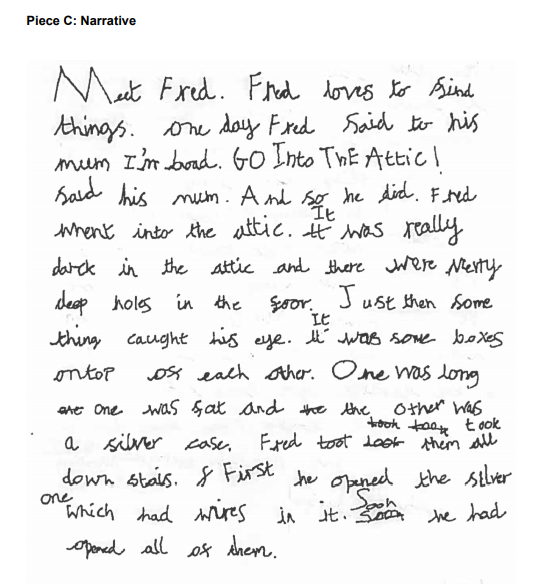 Piece C: Narrative
Meet Fred. Fred loves to find
things. one day Fred Said to his
mum I'm board. GO Into THE Attic!
Said his mum. And so he did. Fred
Whent into the attic. It was really
darck in the attic and there were verry
deep holes in the foor. Just then some
thing caught his eye. It was some boxes
ontop off each other. One was long
one was fat and the other was
a silver case. Fred took them all
down stairs. First he opened the silver
one which had wires in it. Soon he had
opened all of them.